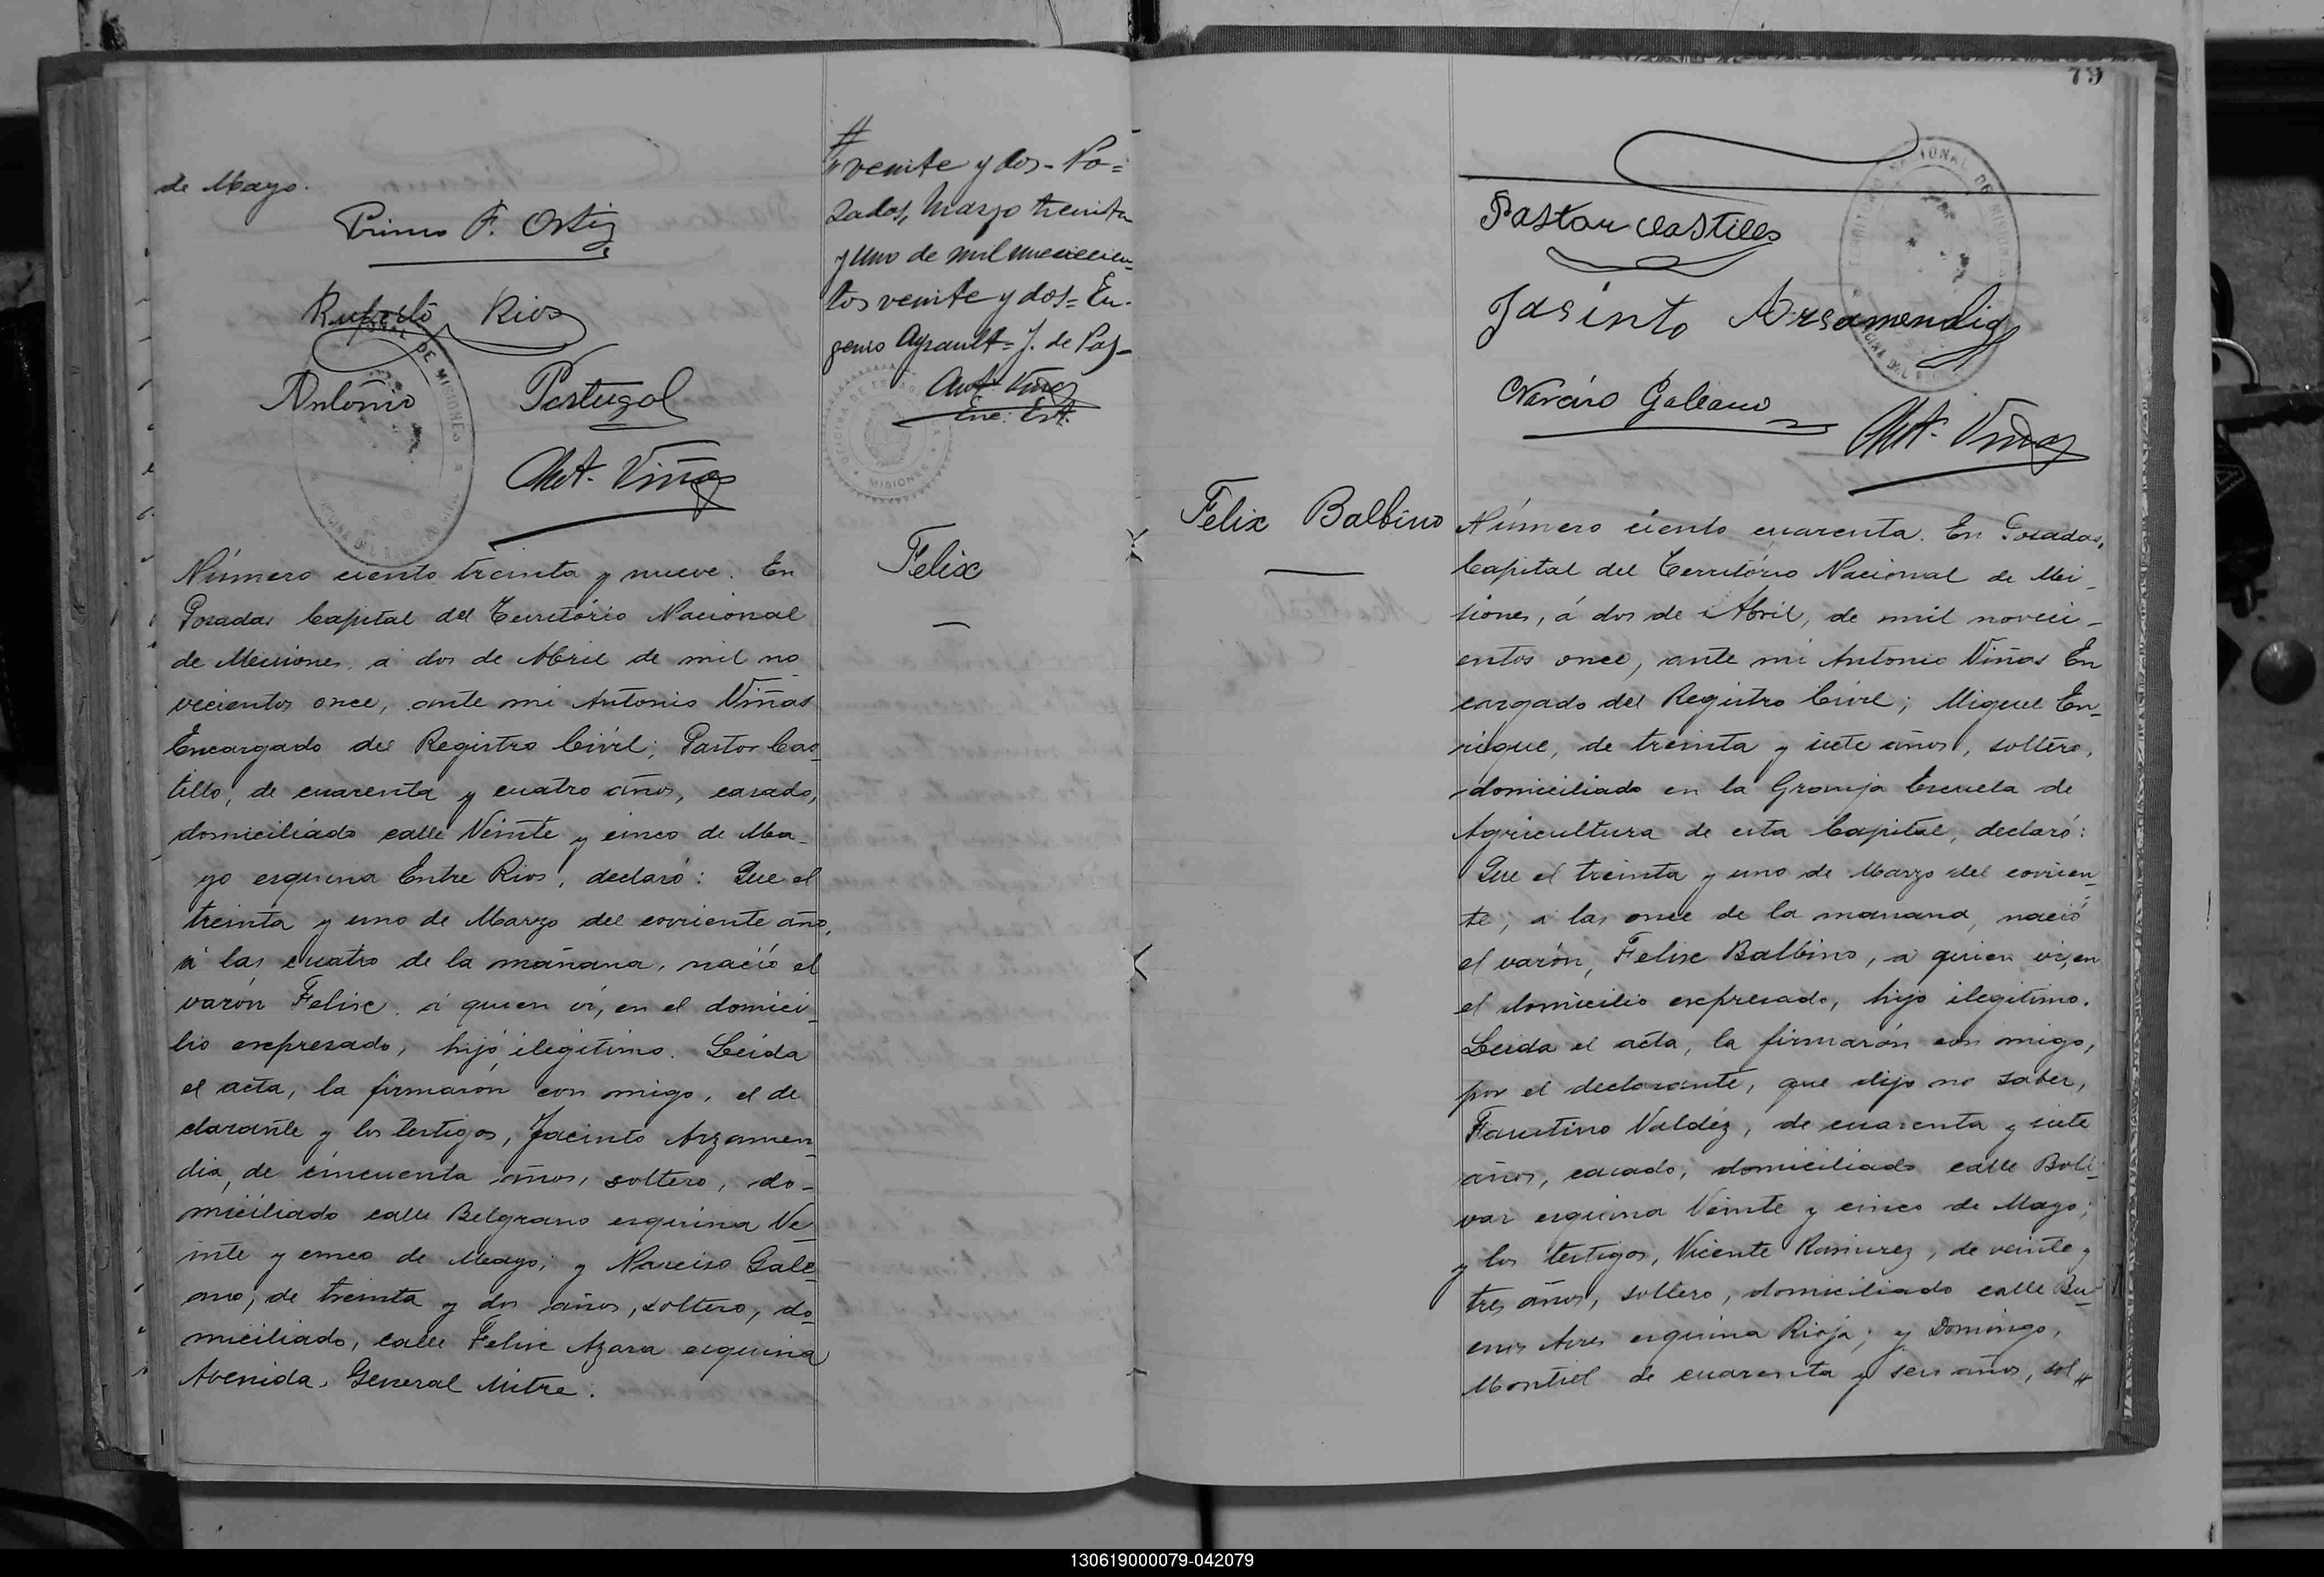 de Mayo.
Primo F. Ortiz
Ruperto Rios
Antonio Portugal
Ant. Viñas
Número ciento treinta y nueve. En
Posadas Capital del Territorio Nacional
de Misiones, á dos de Abril de mil no
vecientos once, ante mi Antonio Viñas
Encargado del Registro Civil; Pastor Cas
tillo, de cuarenta y cuatro años, casado,
domiciliado calle Veinte y cinco de Ma-
yo esquina Entre Rios, declaró: Que el
treinta y uno de Marzo del corriente año,
á las cuatro de la mañana, nació el
varón Felix, á quien ví, en el domici-
lio expresado, hijo ilegitimo. Leida
el acta, la firmarón con migo, el de
clarante y los testigos, Jacinto Arzamen
dia, de cincuenta años, soltero, do-
miciliado calle Belgrano esquina Ve-
inte y cinco de Mayo; y Narciso Gale
ano, de treinta y dos años, soltero, do
miciliado, calle Felix Azara esquina
Avenida, General Mitre.
# veinte y dos - Po=
sadas, Marzo treinta
y uno de mil novecien
tos veinte y dos = Eu-
genio Ayrault = J. de Paz -
Ant. Viñas
Enc. Est.
OFICINA DE ESTADISTICA
MISIONES
Felix
79
TERRITORIO NACIONAL DE MISIONES
OFICINA DEL REGISTRO CIVIL
Pastor Castillo
Jasinto Arsamendia
Narciso Galeano
Ant. Viñas
Felix Balbino
Número ciento cuarenta. En Posadas,
Capital del Territorio Nacional de Mi-
siones, á dos de Abril, de mil noveci-
entos once, ante mi Antonio Viñas En
cargado del Registro Civil; Miguel En-
rique, de treinta y siete años, soltero,
domiciliado en la Granja Escuela de
Agricultura de esta Capital, declaró:
Que el treinta y uno de Marzo del corrien-
te, á las once de la manana, nació
el varón, Felix Balbino, á quien ví, en
el domicilio expresado, hijo ilegitimo.
Leida el acta, la firmarón con migo,
por el declarante, que dijo no saber,
Faustino Valdéz, de cuarenta y siete
años, casado, domiciliado calle Boli-
var esquina Veinte y cinco de Mayo;
y los testigos, Vicente Ramirez, de veinte y
tres años, soltero, domiciliado calle Bu-
enos Aires esquina Rioja; y Domingo,
Montiel de cuarenta y seis años, sol #
130619000079-042079